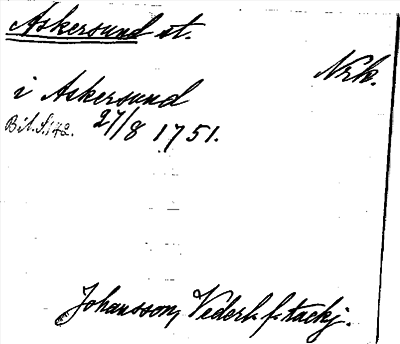 Askersund st.
Nrk.
i Askersund
B.t.S. 142. 27/8 1751.
Johansson, Vederl. f. tackj.